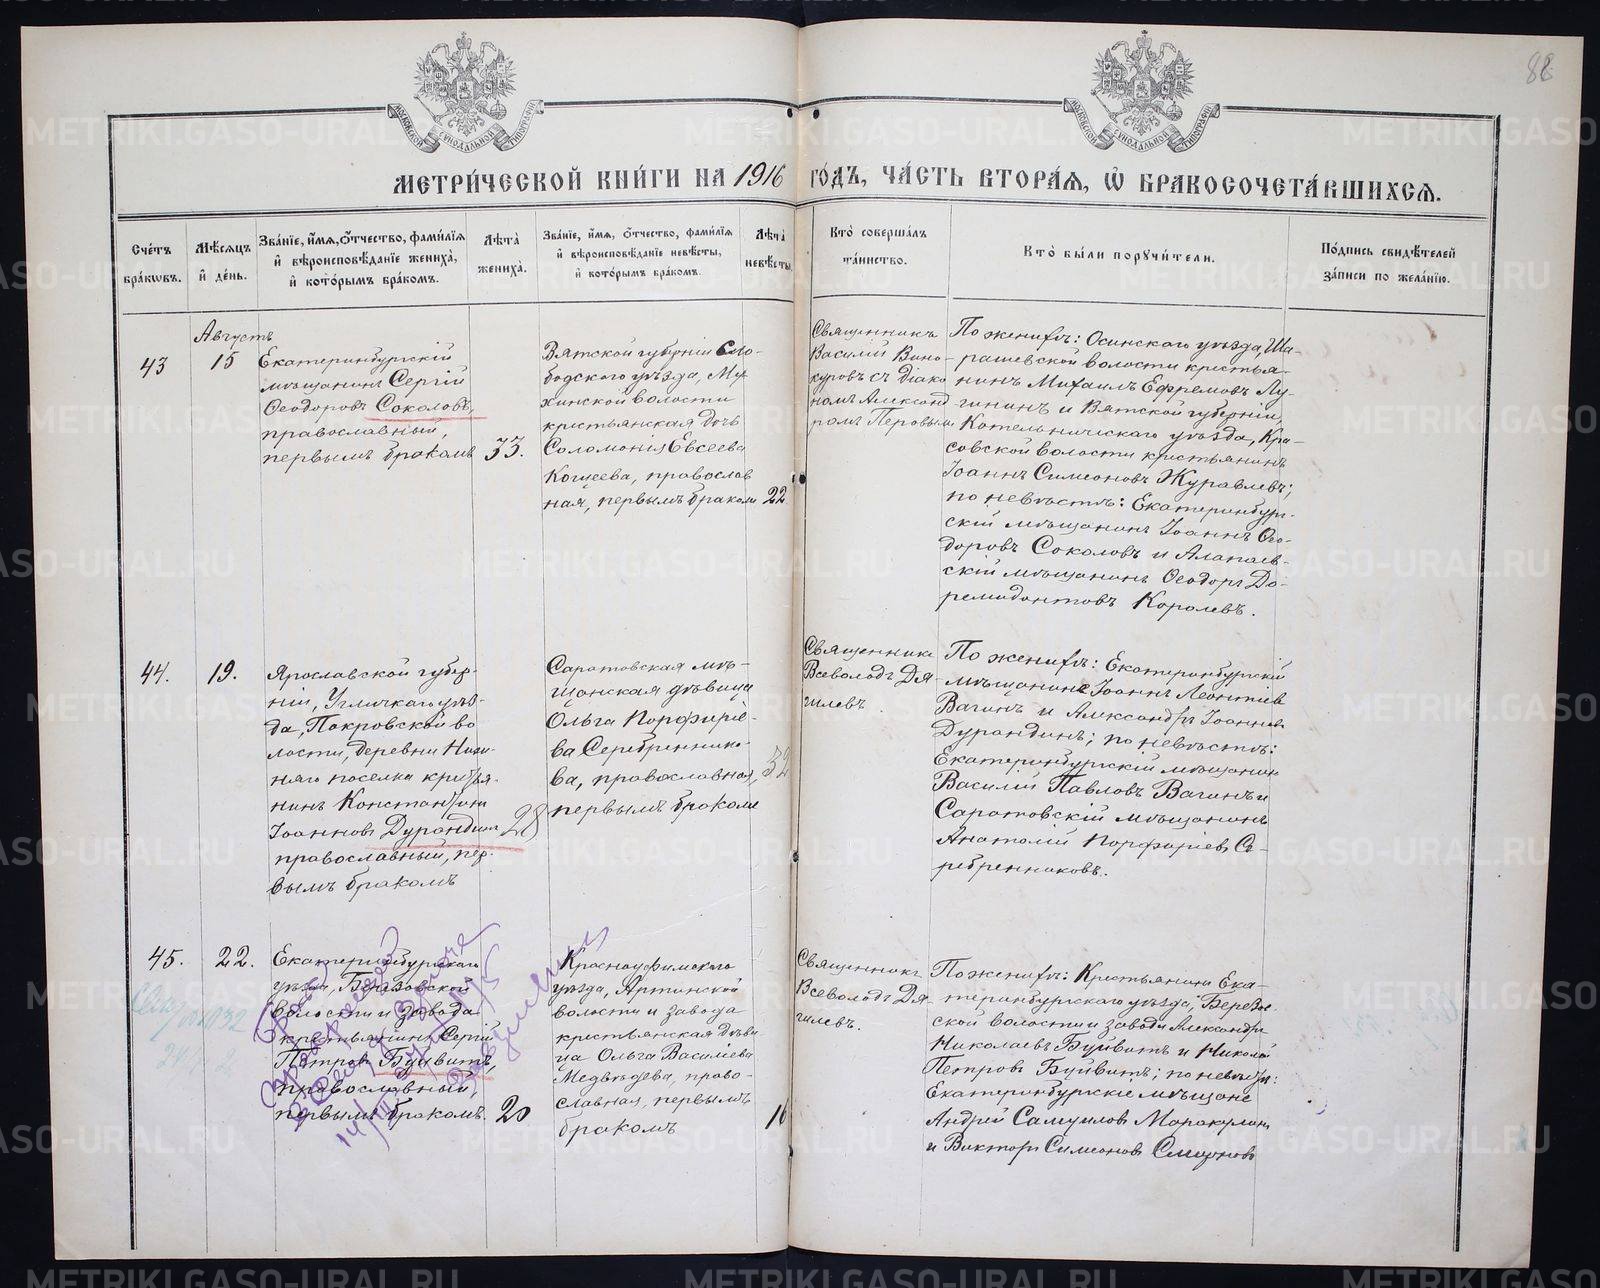 88
МЕТРИ́ЧЕСКОЙ КНИ́ГИ НА 1916 ГО́ДЪ, ЧА́СТЬ ВТОРА́Я, Ѡ҆ БРАКОСОЧЕТА́ВШИХСЯ.
Сче́тъ бра́кѡвъ.
Мѣ́сяцъ и҆ де́нь.
Зва́нїе, и҆́мя, ѻ҆́тчество, фами́лїя и҆ вѣроисповѣ́данїе жениха̀, и҆ кото́рымъ бра́комъ.
Лѣта̀ жениха̀.
Зва́нїе, и҆́мя, ѻ҆́тчество, фами́лїя и҆ вѣроисповѣ́данїе невѣ́сты, и҆ кото́рымъ бра́комъ.
Лѣта̀ невѣ́сты.
Кто̀ соверша́лъ та́инство.
Кто̀ бы́ли порꙋчи́тели.
По́дпись свидѣ́телей за́писи по жела́нїю.
43
Августъ
15
Екатеринбургскій
мѣщанинъ Сергій
Ѳеодоровъ Соколовъ,
православный,
первымъ бракомъ
33.
Вятской губерніи Сло-
бодского уѣзда, Му-
хинской волости
крестьянская дочь
Соломонія Евсеева
Кощеева, православ
ная, первымъ бракомъ
22.
Священникъ
Василій Вино-
куровъ съ діако
номъ Александ
ромъ Перовымъ
По женихѣ: Осинскаго уѣзда, Ша-
рашевской волости крестья-
нинъ Михаилъ Ефремовъ Лу-
гининъ и Вятской губерніи,
Котельническаго уѣзда, Кра-
совской волости крестьянинъ
Іоаннъ Симеоновъ Журавлевъ;
по невѣстѣ: Екатеринбург-
скій мѣщанинъ Іоаннъ Ѳео-
доровъ Соколовъ и Алапаев-
скій мѣщанинъ Ѳеодоръ До-
ремидонтовъ Королевъ.
44.
19.
Ярославской губер-
ніи, Угличкаго уѣз-
да, Покровской во
лости, деревни Ниж-
няго поселка крестья-
нинъ Константинъ
Іоанновъ Дурандинъ
православный, пер-
вымъ бракомъ
28
Саратовская мѣ-
щанская дѣвица
Ольга Порфиріе-
ва Серебреннико-
ва, православная,
первымъ бракомъ
32
Священникъ
Всеволодъ Дя-
гилевъ.
По женихѣ: Екатеринбургскій
мѣщанинъ Іоаннъ Леонтіев
Вагинъ и Александръ Іоанновъ
Дурандинъ; по невѣстѣ:
Екатеринбургскій мѣщанин
Василій Павловъ Вагинъ и
Саратовскій мѣщанинъ
Анатолій Порфиріевъ Се-
ребренниковъ.
45.
22.
Екатеринбургскаго
уѣзда, Березовской
волости и завода
крестьянинъ Сергій
Петровъ Буйвитъ,
православный,
первымъ бракомъ.
20
Красноуфимскаго
уѣзда, Артинской
волости и завода
крестьянская дѣви
ца Ольга Василіева
Медвѣдева, право-
славная, первымъ
бракомъ
16
Священникъ
Всеволодъ Дя-
гилевъ.
По женихѣ: Крестьянинъ Ека-
теринбургскаго уѣзда, Березов
ской волости и завода Александръ
Николаевъ Буйвитъ и Николай
Петровъ Буйвитъ; по невѣстѣ:
Екатеринбургскіе мѣщане
Андрей Самуиловъ Маракулинъ
и Викторъ Симеоновъ Смирновъ
METRIKI.GASO-URAL.RU